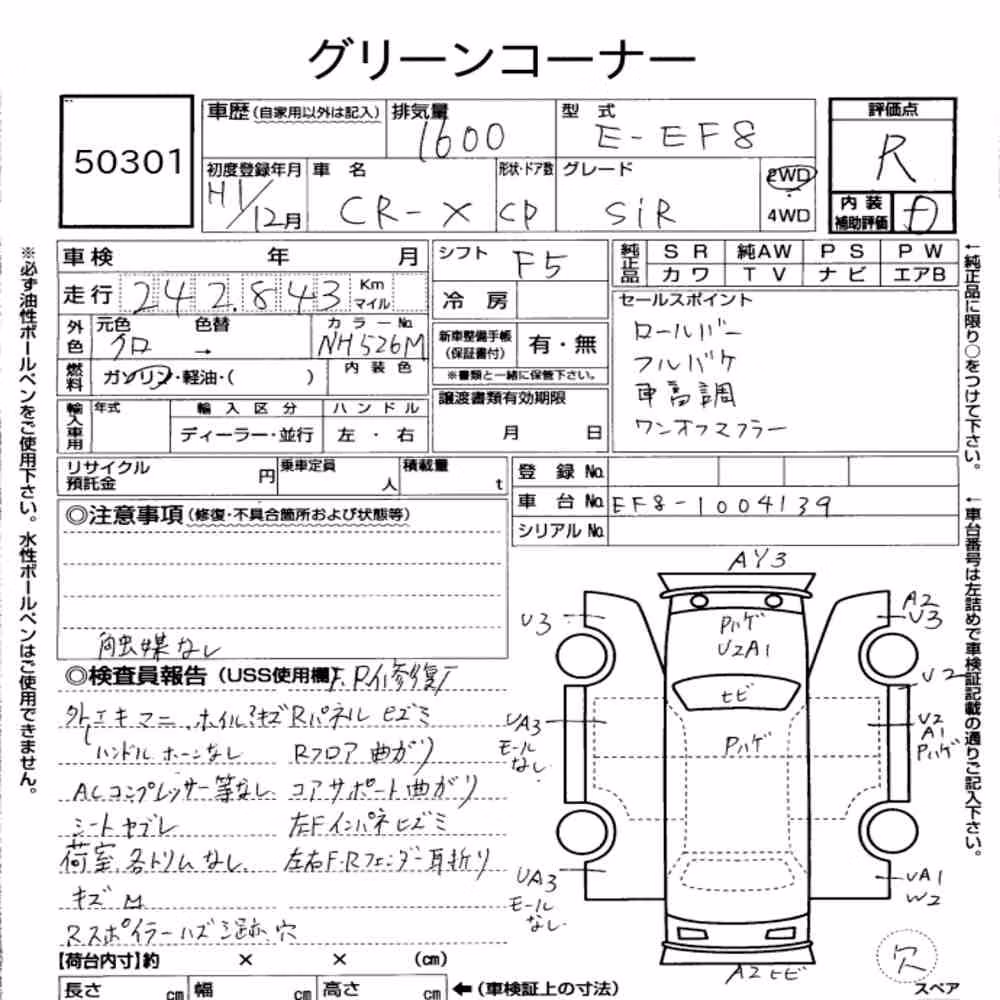 グリーンコーナー
50301
車歴(自家用以外は記入) 排気量 1600 型式 E-EF8
評価点 R
初度登録年月 H1/12月 車名 CR-X 形状・ドア数 CP グレード SiR 2WD 4WD
内装補助評価 D
車検 年 月
走行 242,843 Km マイル
外色 元色 クロ 色替 → カラーNo. NH526M
燃料 ガソリン・軽油・( ) 内装色
輸入車用 年式 輸入区分 ハンドル
ディーラー・並行 左・右
シフト F5
冷房
新車整備手帳(保証書付) 有・無
※書類と一緒に保管下さい。
譲渡書類有効期限
月 日
純正品 SR 純AW PS PW
カワ TV ナビ エアB
セールスポイント
ロールバー
フルバケ
車高調
ワンオフマフラー
リサイクル預託金 円 乗車定員 人 積載量 t
登録No.
車台No. EF8-1004139
シリアルNo.
◎注意事項(修復・不具合箇所および状態等)
触媒なし
◎検査員報告(USS使用欄)
F.Pイ修復
外エキマニ、ホイルキズ Rパネルヒズミ
ハンドルホーンなし Rフロア曲がり
ACコンプレッサー等なし コアサポート曲がり
シートヤブレ 左Fインパネヒズミ
荷室、各トリムなし 左右F・Rフェンダー耳折り
キズ M
Rスポイラーハズシ跡、穴
【荷台内寸】約 × × (cm)
長さ cm 幅 cm 高さ cm ←(車検証上の寸法)
AY3
U3
A2
U3
Pハゲ
U2A1
U2
ヒビ
UA3
モールなし
Pハゲ
U2
A1
Pハゲ
UA3
モールなし
UA1
W2
A2ヒビ
欠
スペア
※必ず油性ボールペンをご使用下さい。水性ボールペンはご使用できません。
←純正品に限り○をつけて下さい。
←車台番号は左詰めで車検証記載の通りご記入下さい。